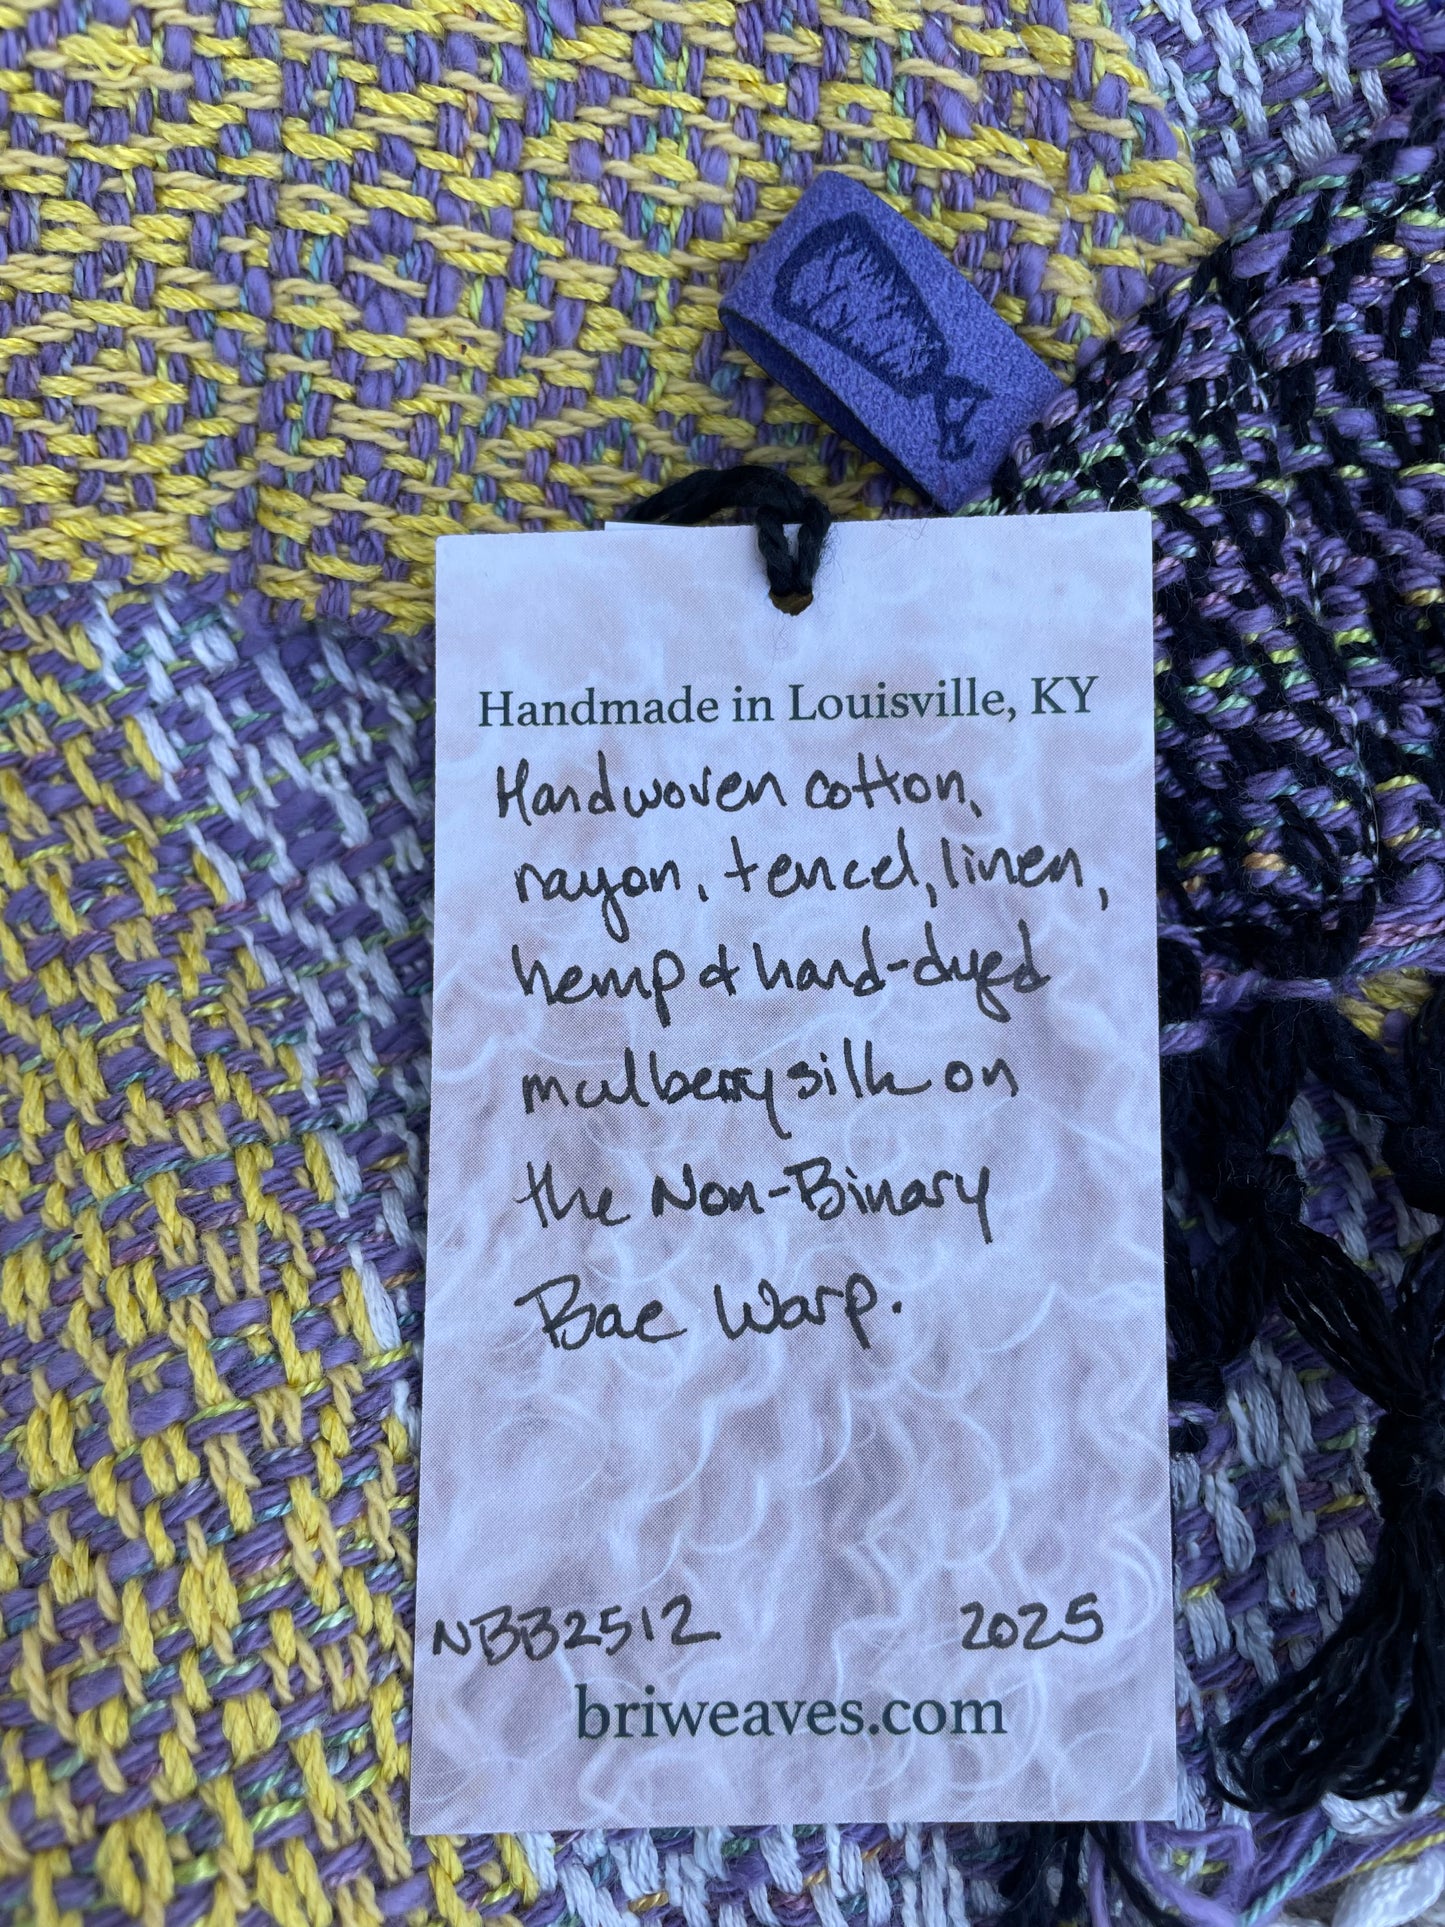 Handmade in Louisville, KY
Handwoven cotton,
rayon, tencel, linen,
hemp & hand-dyed
mulberry silk on
the Non-Binary
Bae Warp.
NBB2512 2025
briweaves.com